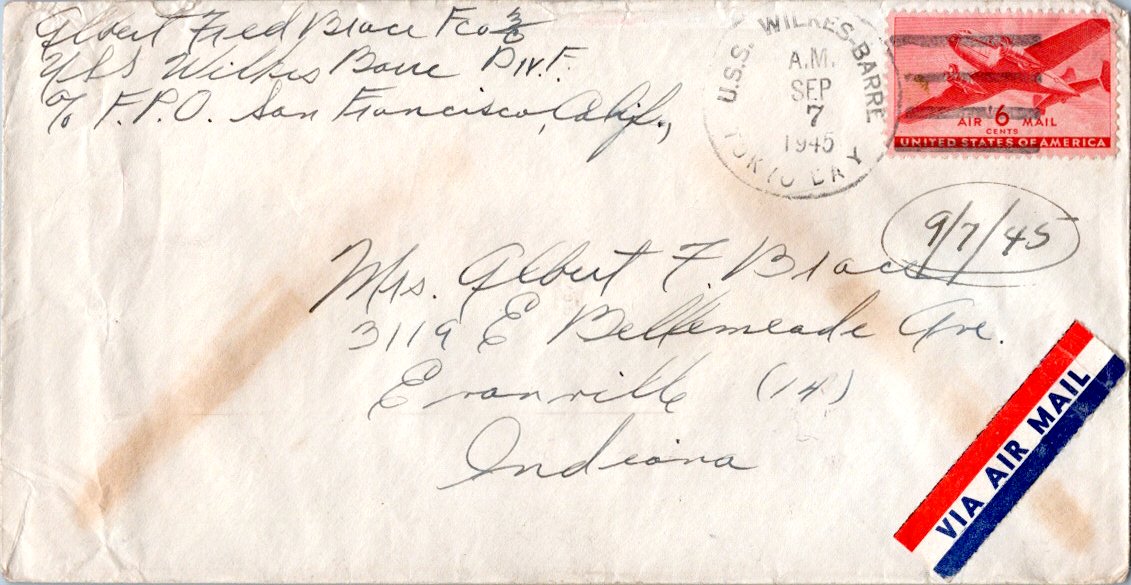 Albert Fred Brace Fco 3/c
USS Wilkes Barre Div. F.
c/o F.P.O. San Francisco, Calif.,
U.S.S. WILKES-BARRE
A.M.
SEP
7
1945
TOKIO BAY
AIR 6 MAIL
CENTS
UNITED STATES OF AMERICA
9/7/45
Mrs. Albert F. Brace
3119 E Bellemeade Ave.
Evanville (14)
Indiana
VIA AIR MAIL